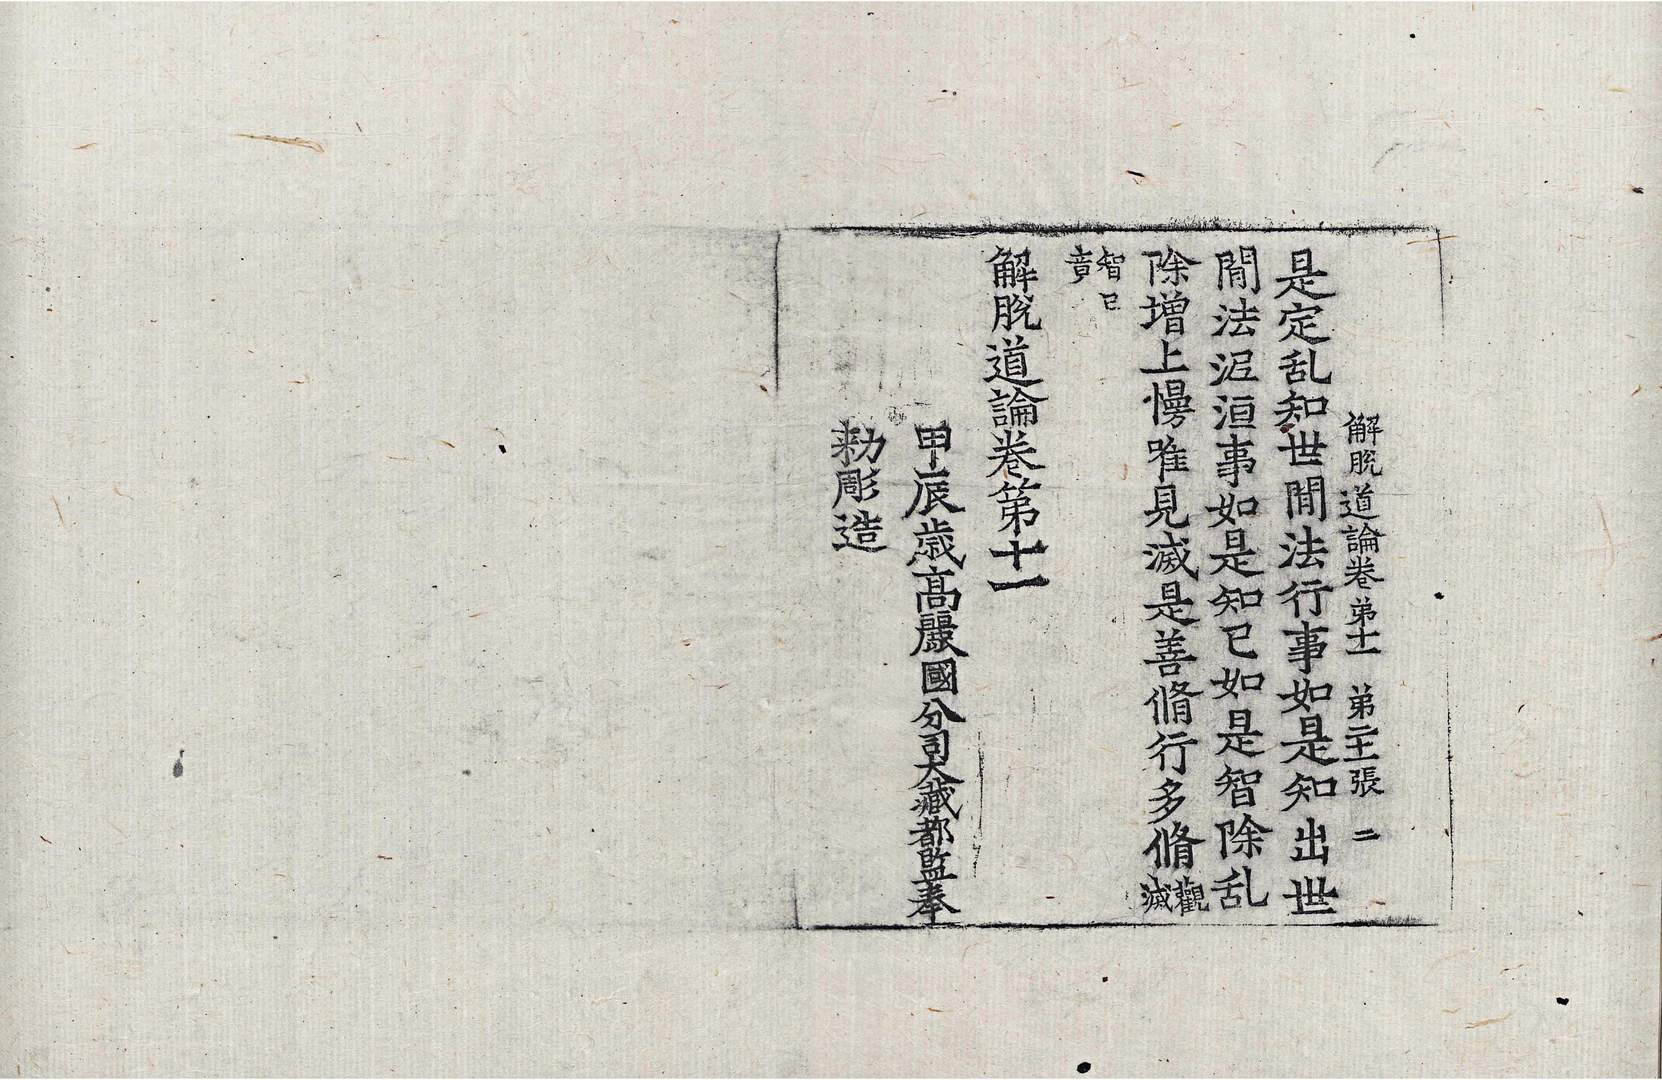 解脫道論卷弟十一　弟二十一張　二
是定乱知世閒法行事如是知出世
閒法泥洹事如是知已如是智除乱
除增上慢唯見滅是善脩行多脩觀滅
智已竟
解脫道論卷第十一
甲辰歳高麗國分司大藏都監奉
勑彫造